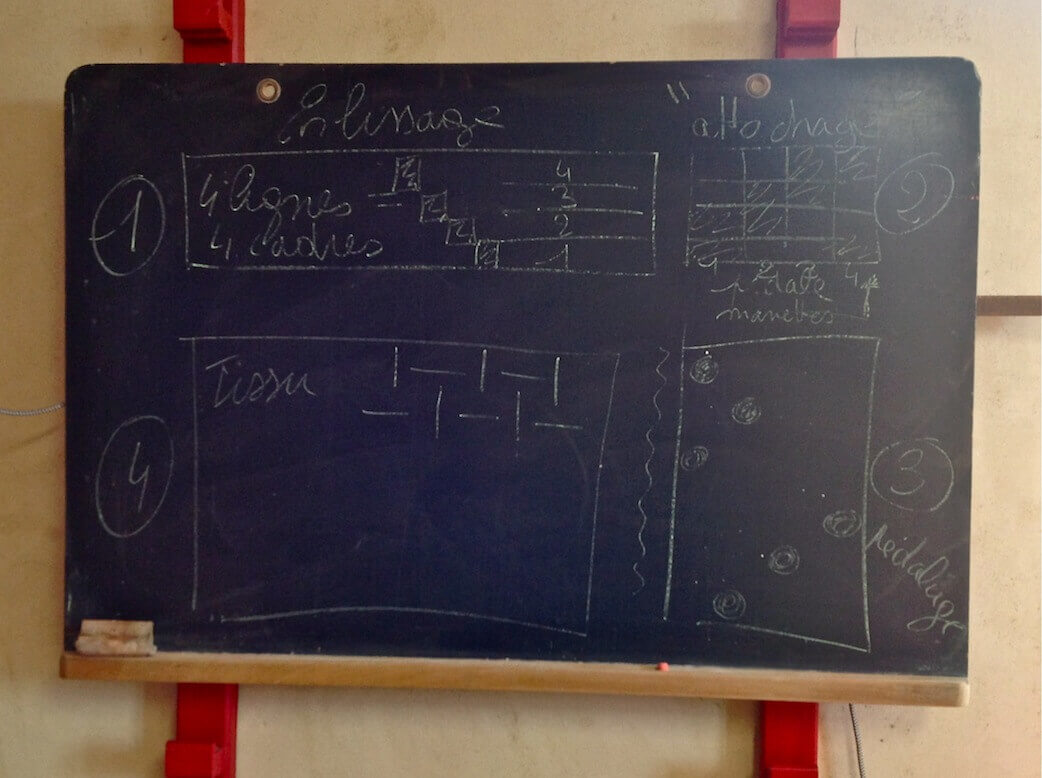 Enlissage
" attachage
1
4 lignes
4 Cadres
4
3
2
1
2
1 2 3 4
pédale
manettes
Tissu
4
3
pédalage